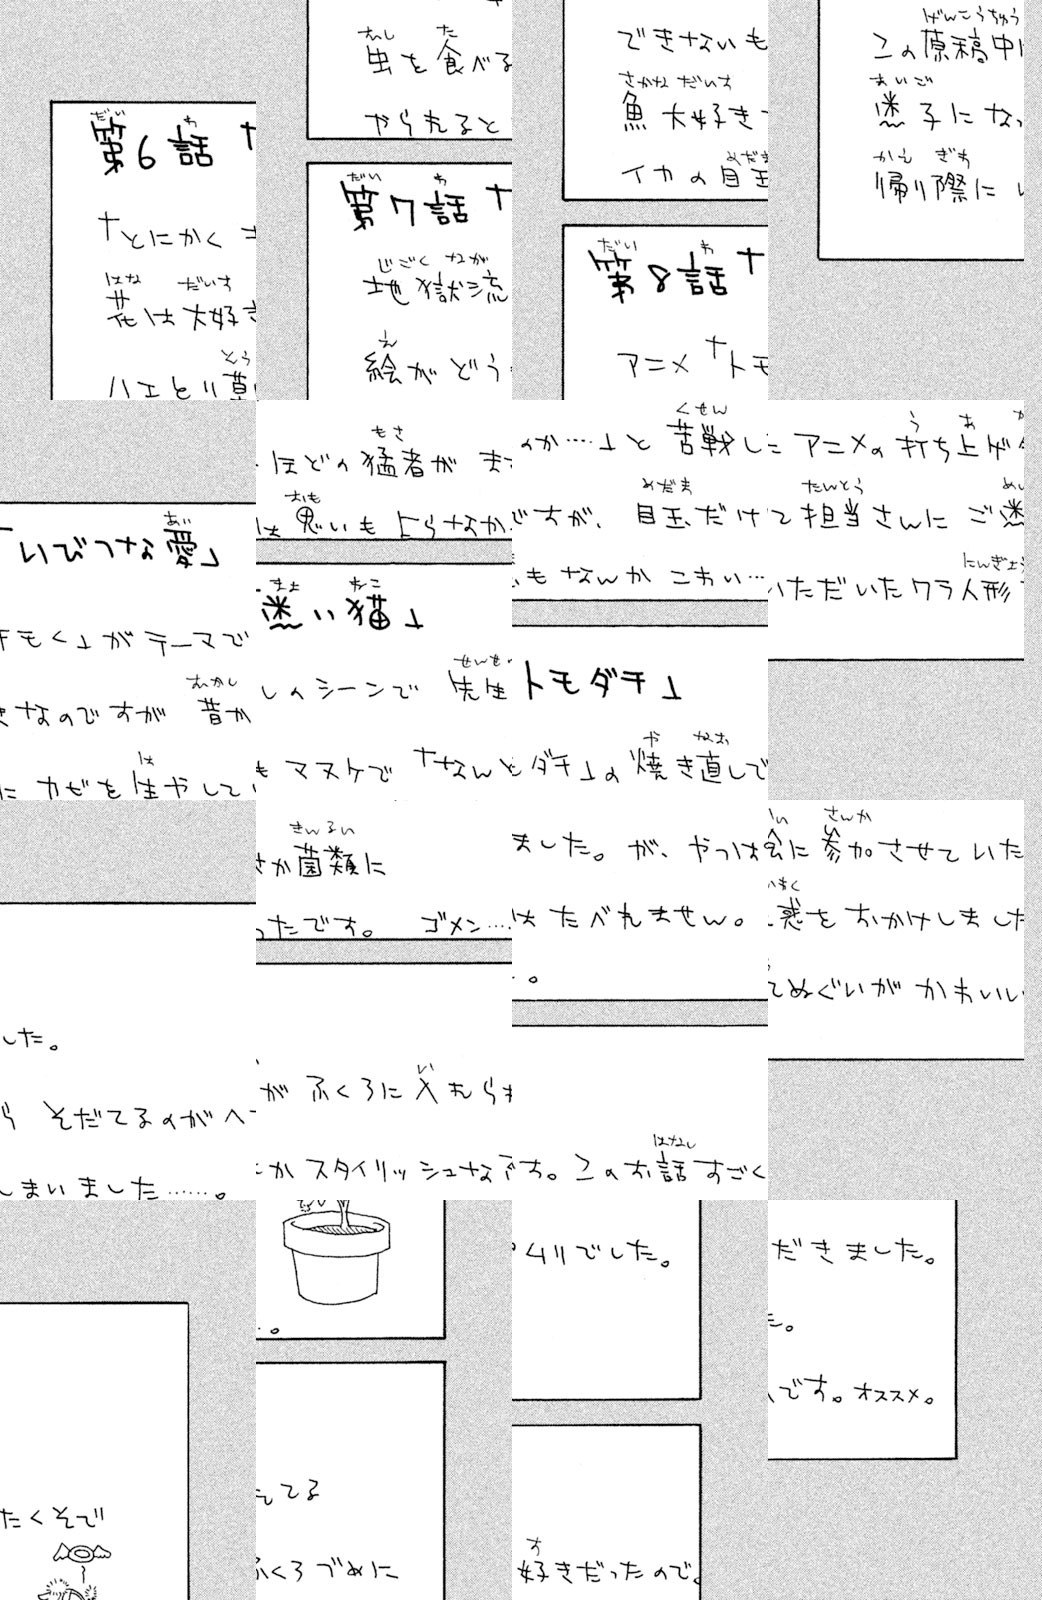 第6話「
「とにかく
花は大好き
ハエとり草
虫を食べる
やられると
第7話「
地獄流
絵がどう
できないも
魚大好き
イカの目玉
第8話「
アニメ「トモ
この原稿中
迷子になっ
帰り際に
「いびつな愛」
きもく」がテーマで
きなのですが 昔か
にカゼを生やして
ほどの猛者がま
は思いもよらなか
迷い猫」
しのシーンで 先生
もマヌケで「なんと
のか…」と苦戦し
ですが、目玉だけ
もなんかこわい…
トモダチ」
ダチ」の焼き直しで
たアニメの打ち上げ
て担当さんにご迷
いただいたワラ人形
した。
ら そだてるのがヘ
しまいました……。
さか菌類に
ったです。 ゴメン…
がふくろに入れられ
かスタイリッシュな
ました。が、やつは
はたべれません。
。
です。このお話すごく
会に参加させていた
惑をおかけしました
てぬぐいがかわいい
たくそで
。
てる
ふくろづめに
ムリでした。
好きだったので。
だきました。
た。
です。オススメ。